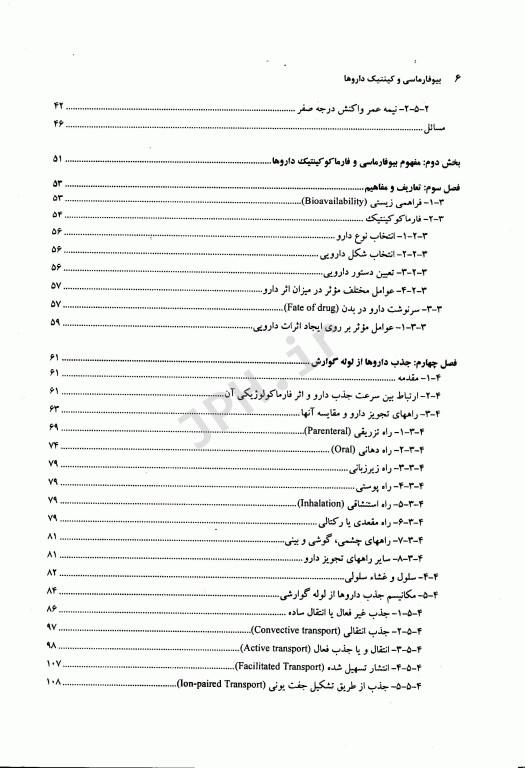 ۶ بیوفارماسی و کینتیک داروها
۲-۵-۲- نیمه عمر واکنش درجه صفر ........ ۴۲
مسائل ........ ۴۶
بخش دوم: مفهوم بیوفارماسی و فارماکوکینتیک داروها ........ ۵۱
فصل سوم: تعاریف و مفاهیم ........ ۵۳
۳-۱- فراهمی زیستی (Bioavailability) ........ ۵۳
۳-۲- فارماکوکینتیک ........ ۵۴
۳-۲-۱- انتخاب نوع دارو ........ ۵۶
۳-۲-۲- انتخاب شکل دارویی ........ ۵۶
۳-۲-۳- تعیین دستور دارویی ........ ۵۶
۳-۲-۴- عوامل مختلف مؤثر در میزان اثر دارو ........ ۵۷
۳-۳- سرنوشت دارو در بدن (Fate of drug) ........ ۵۷
۳-۳-۱- عوامل مؤثر بر روی ایجاد اثرات دارویی ........ ۵۹
فصل چهارم: جذب داروها از لوله گوارش ........ ۶۱
۴-۱- مقدمه ........ ۶۱
۴-۲- ارتباط بین سرعت جذب دارو و اثر فارماکولوژیکی آن ........ ۶۱
۴-۳- راههای تجویز دارو و مقایسه آنها ........ ۶۳
۴-۳-۱- راه تزریقی (Parenteral) ........ ۶۹
۴-۳-۲- راه دهانی (Oral) ........ ۷۴
۴-۳-۳- راه زیرزبانی ........ ۷۹
۴-۳-۴- راه پوستی ........ ۷۹
۴-۳-۵- راه استنشاقی (Inhalation) ........ ۷۹
۴-۳-۶- راه مقعدی یا رکتالی ........ ۷۹
۴-۳-۷- راههای چشمی، گوشی و بینی ........ ۸۱
۴-۳-۸- سایر راههای تجویز دارو ........ ۸۱
۴-۴- سلول و غشاء سلولی ........ ۸۲
۴-۵- مکانیسم جذب داروها از لوله گوارشی ........ ۸۴
۴-۵-۱- جذب غیر فعال یا انتقال ساده ........ ۸۶
۴-۵-۲- جذب انتقالی (Convective transport) ........ ۹۷
۴-۵-۳- انتقال و یا جذب فعال (Active transport) ........ ۹۸
۴-۵-۴- انتشار تسهیل شده (Facilitated Transport) ........ ۱۰۷
۴-۵-۵- جذب از طریق تشکیل جفت یونی (Ion-paired Transport) ........ ۱۰۸
JPH.ir